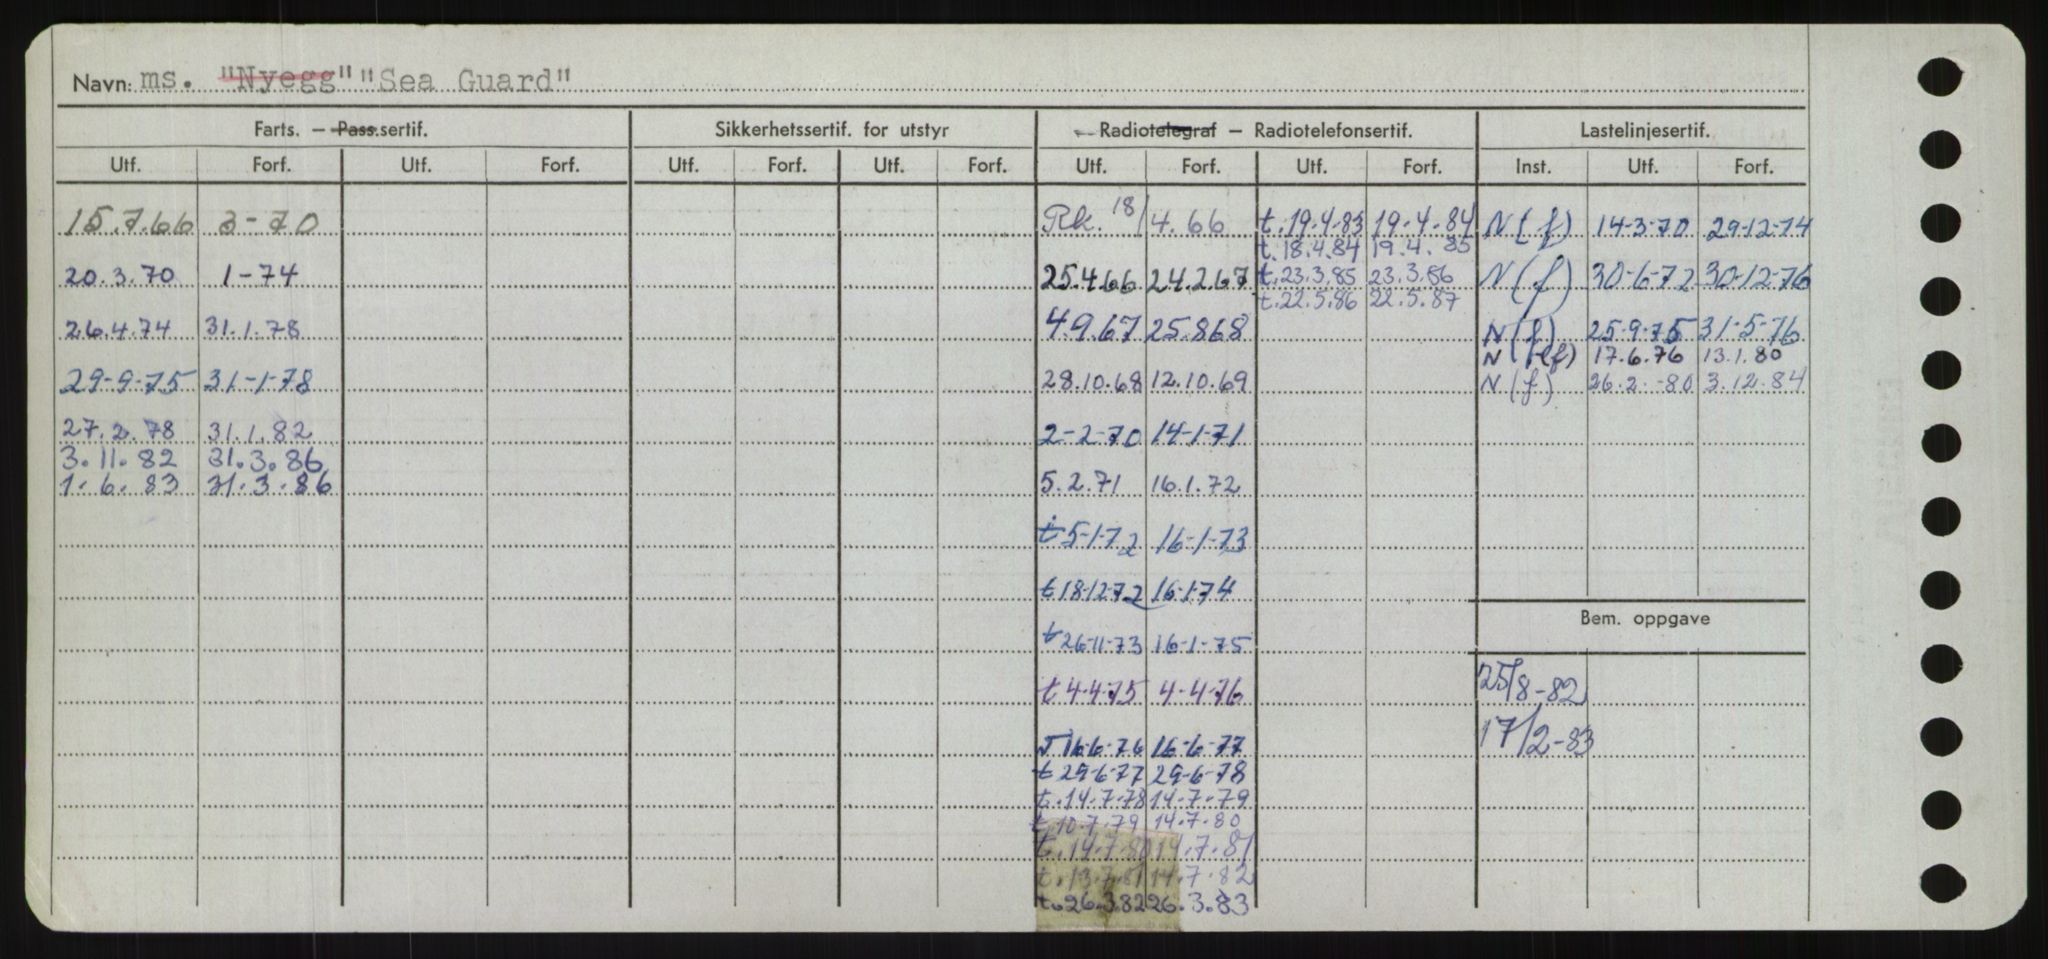 Navn: ms. "Nyegg" "Sea Guard"
Farts. – Pass.sertif. Sikkerhetssertif. for utstyr Radiotelegraf – Radiotelefonsertif. Lastelinjesertif.
Utf. Forf. Utf. Forf. Utf. Forf. Utf. Forf. Utf. Forf. Utf. Forf. Inst. Utf. Forf.
15.7.66 3-70 Rk. 18/4.66 t.19.4.83 19.4.84 N(f) 14-3-70 29-12-74
t.18.4.84 19.4.85
20.3.70 1-74 25.4.66 24.2.67 t.23.3.85 23.3.86 N(f) 30-6-72 30-12-76
t.22.5.86 22.5.87
26.4.74 31.1.78 4.9.67 25.868 N(f) 25-9-75 31-5-76
N (f) 17.6.76 13.1.80
29-9-75 31-1-78 28.10.68 12.10.69 N(f) 26.2.-80 3.12.84
27.2.78 31.1.82 2-2-70 14-1-71
3.11.82 31.3.86
1.6.83 31.3.86 5.2.71 16.1.72
t 5-1-72 16-1-73
t 18-12-72 16-1-74
Bem. oppgave
t 26-11-73 16-1-75
t 4-4-75 4-4-76 25/8-82
16-6-76 16-6-77 17/2-83
t 29-6-77 29-6-78
t.14.7.78 14.7.79
t.10.7.79 14.7.80
t.14.7.80 14.7.81
t.13.7.81 14.7.82
t.26.3.82 26.3.83